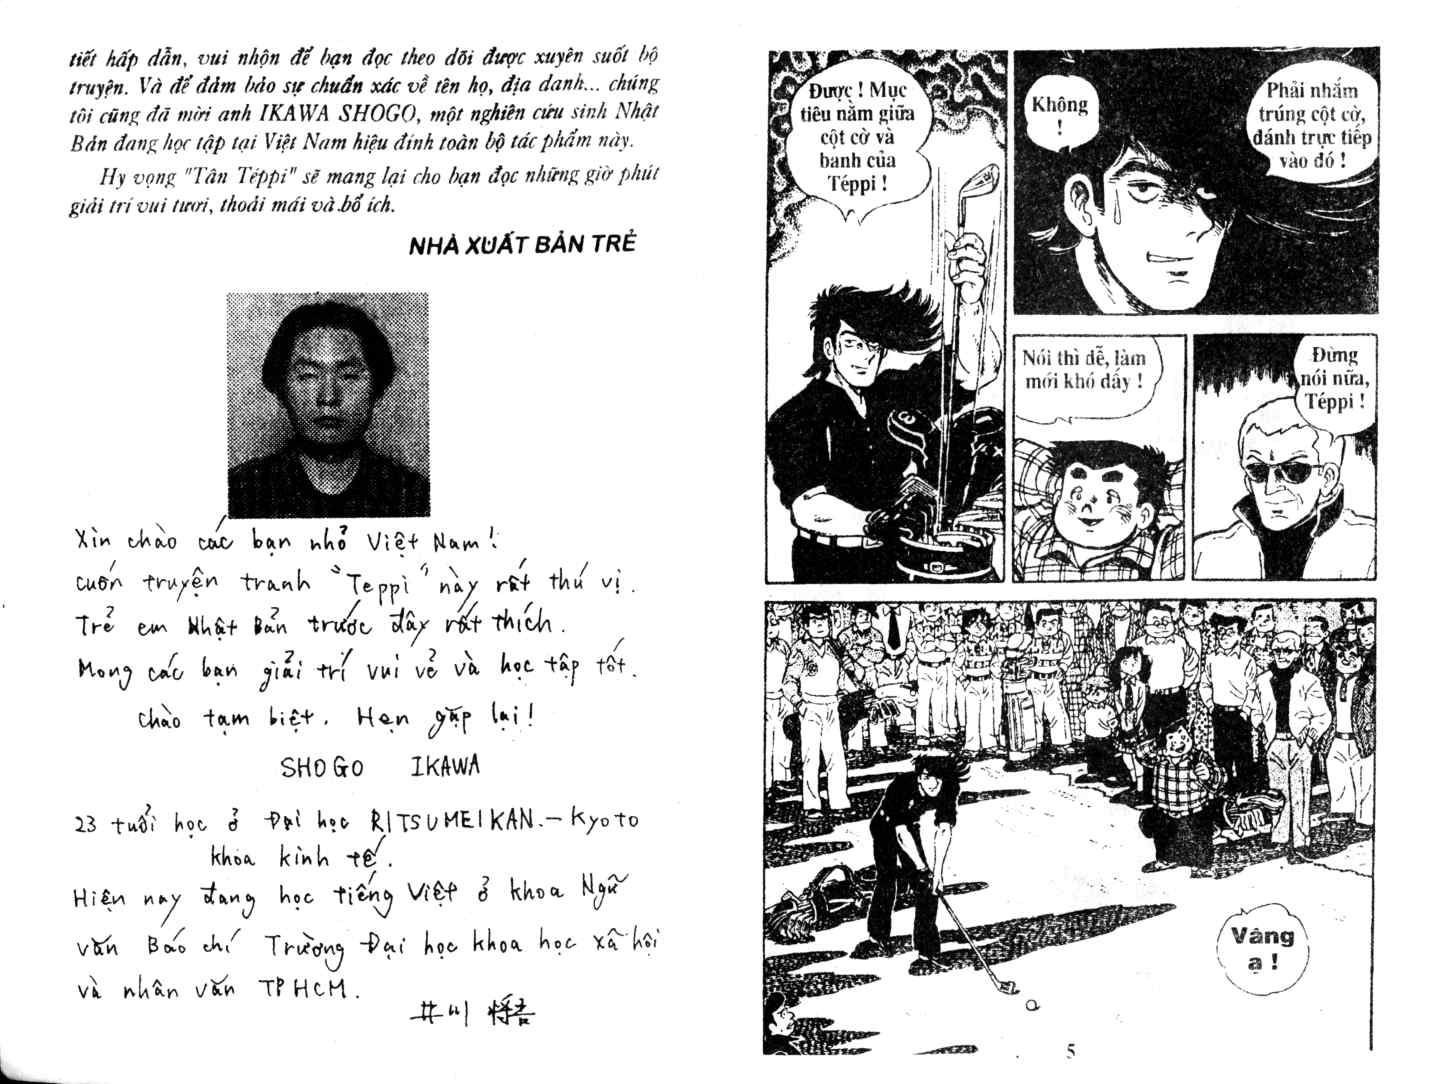 tiết hấp dẫn, vui nhộn để bạn đọc theo dõi được xuyên suốt bộ
truyện. Và để đảm bảo sự chuẩn xác về tên họ, địa danh... chúng
tôi cũng đã mời anh IKAWA SHOGO, một nghiên cứu sinh Nhật
Bản đang học tập tại Việt Nam hiệu đính toàn bộ tác phẩm này.
Hy vọng "Tân Téppi" sẽ mang lại cho bạn đọc những giờ phút
giải trí vui tươi, thoải mái và bổ ích.
NHÀ XUẤT BẢN TRẺ
Xin chào các bạn nhỏ Việt Nam!
cuốn truyện tranh "Teppi" này rất thú vị.
Trẻ em Nhật Bản trước đây rất thích.
Mong các bạn giải trí vui vẻ và học tập tốt.
chào tạm biệt. Hẹn gặp lại!
SHOGO IKAWA
23 tuổi học ở Đại học RITSUMEIKAN.- Kyoto
khoa kinh tế.
Hiện nay đang học tiếng Việt ở khoa Ngữ
văn Báo chí Trường Đại học khoa học xã hội
và nhân văn TPHCM.
井川 将吾
Được ! Mục
tiêu nằm giữa
cột cờ và
banh của
Téppi !
Không
!
Phải nhắm
trúng cột cờ,
đánh trực tiếp
vào đó !
Nói thì dễ, làm
mới khó đấy !
Đừng
nói nữa,
Téppi !
Vâng
ạ !
5